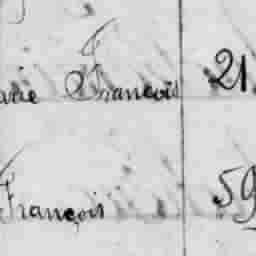 arie François 21
François 59